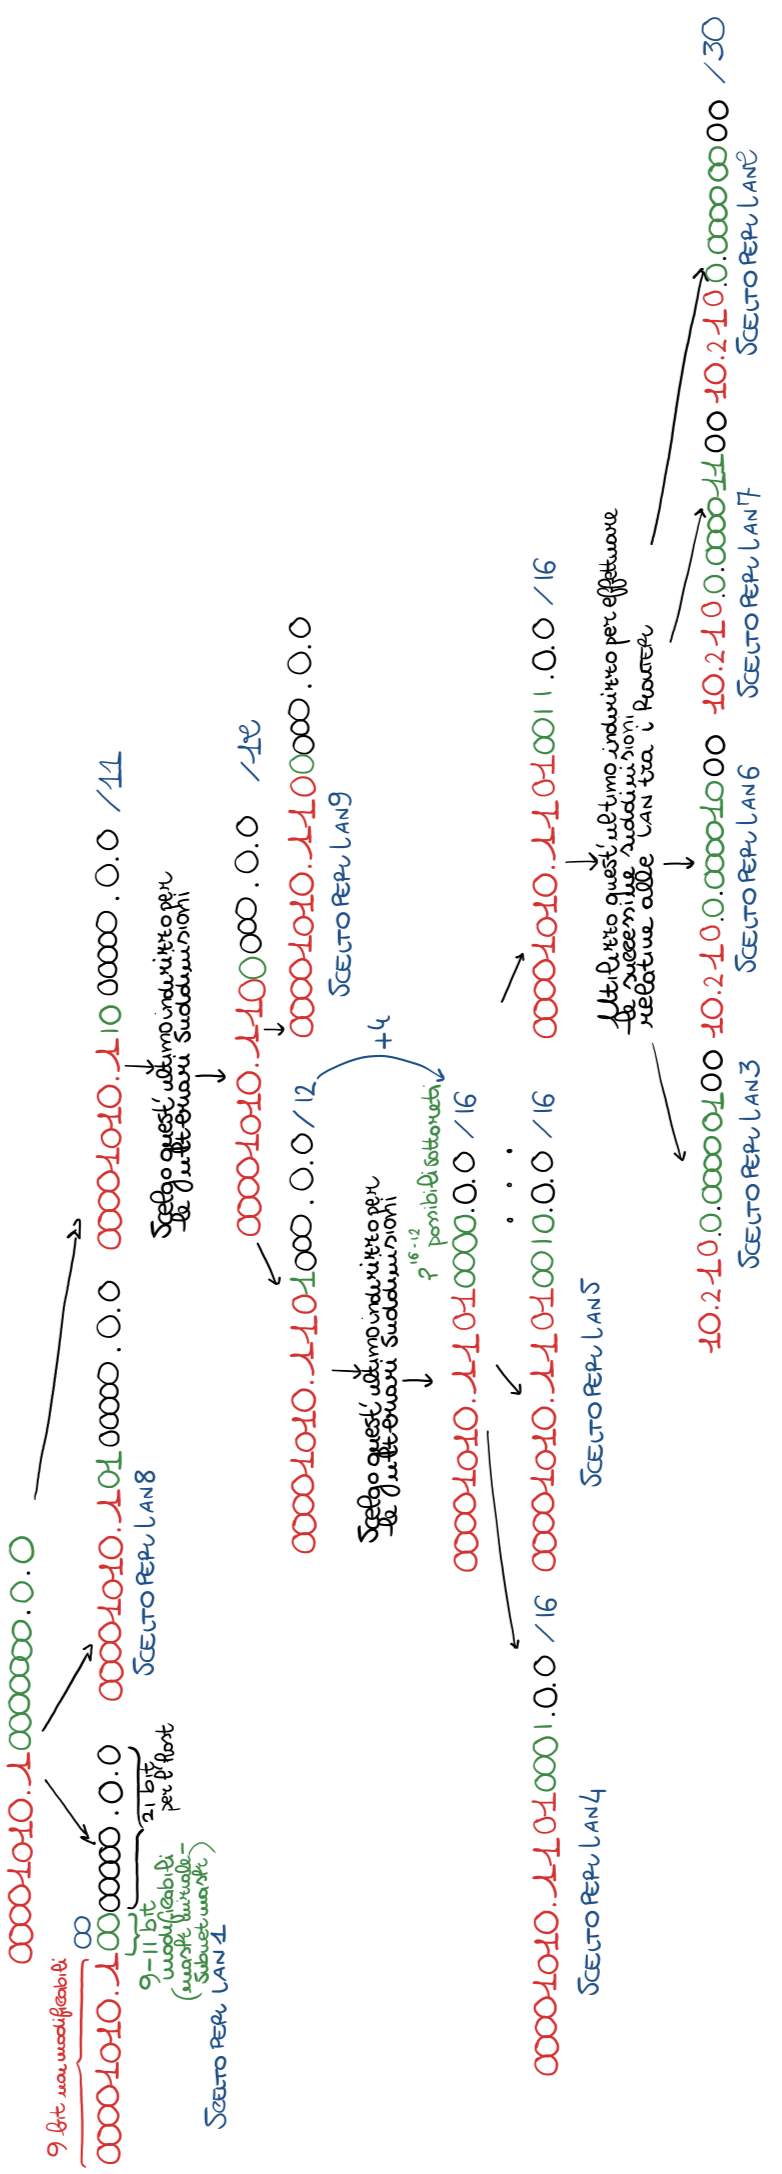 00001010.10000000.0.0
9 bit non modificabili
00
00001010.10000000.0.0
9-11 bit
modificabili
(mask iniziale-
Subnet mask)
21 bit
per l'host
SCELTO PER LAN1
00001010.10100000.0.0
SCELTO PER LAN8
00001010.11000000.0.0 /11
Scelgo quest'ultimo indirizzo per
le ulteriori suddivisioni
00001010.11000000.0.0 /12
00001010.11010000.0.0/12
00001010.11000000.0.0
SCELTO PER LAN9
+4
Scelgo quest'ultimo indirizzo per
le ulteriori suddivisioni
2^16-12 possibili sottoreti
00001010.11010000.0.0 /16
. . .
00001010.11010001.0.0 /16
SCELTO PER LAN4
00001010.11010010.0.0 /16
SCELTO PER LAN5
00001010.11010011.0.0 /16
Utilizzo quest'ultimo indirizzo per effettuare
le successive suddivisioni
relative alle LAN tra i ROUTER
10.210.0.00000100
SCELTO PER LAN3
10.210.0.00001000
SCELTO PER LAN6
10.210.0.00001100
SCELTO PER LAN7
10.210.0.00000000 /30
SCELTO PER LAN2